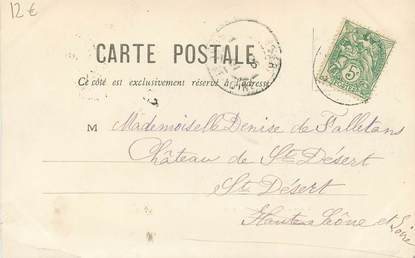 12€
CARTE POSTALE
Ce côté est exclusivement réservé à l'adresse
M Mademoiselle Denise de Falletans
Château de St Désert
St Désert
Haute Saône et Loire
5c